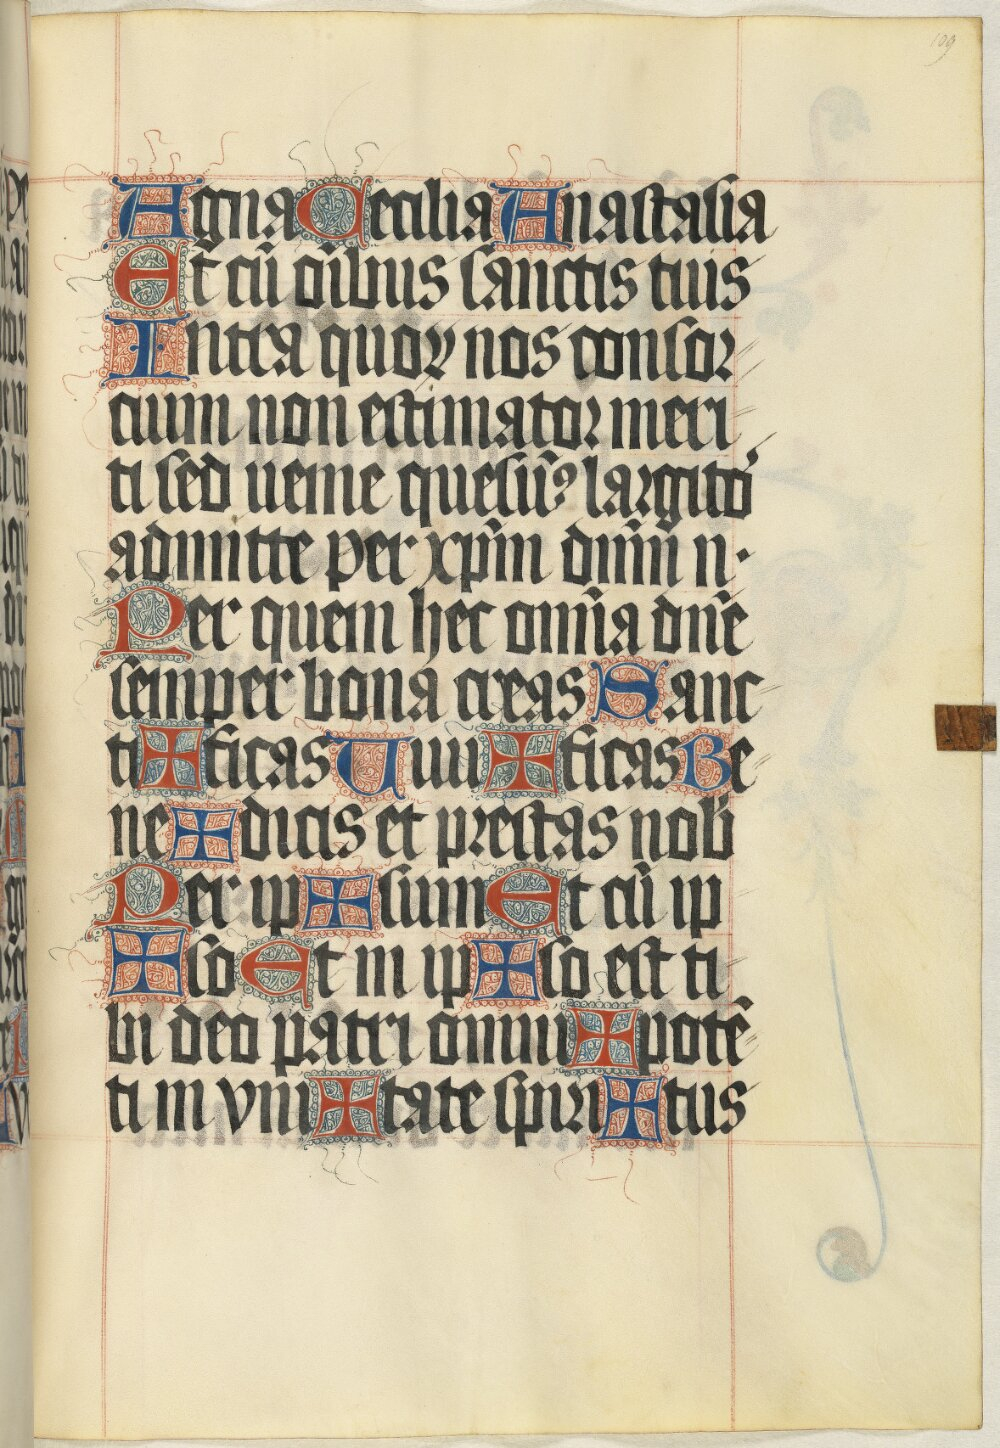 109
Agna Cecilia Anastasia
Et cū oībus sanctis tuis
Intra quoꝝ nos consor
cium non estimator meri
ti sed venie quesum᷒ largitor
admitte per xp̄m dn̄m n.
Per quem hec omīa dn̄e
semper bona creas Sanc
ti ✠ ficas Uiui ✠ ficas Be
ne ✠ dicis et prestas nob̄
Per ip ✠ sum Et cū ip
✠ so Et in ip ✠ so est ti
bi deo patri omni ✠ potē
ti in vni ✠ tate spiri ✠ tus